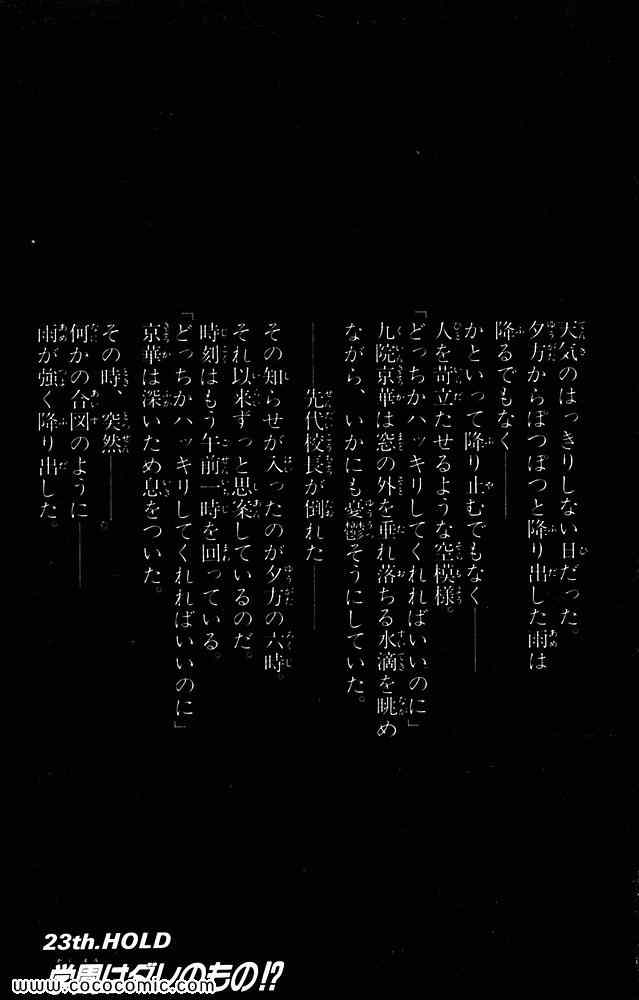 天気のはっきりしない日だった。
夕方からぽつぽつと降り出した雨は
降るでもなく――
かといって降り止むでもなく――
人を苛立たせるような空模様。
「どっちかハッキリしてくれればいいのに」
九院京華は窓の外を垂れ落ちる水滴を眺め
ながら、いかにも憂鬱そうにしていた。
――先代校長が倒れた――
その知らせが入ったのが夕方の六時。
それ以来ずっと思案しているのだ。
時刻はもう午前一時を回っている。
「どっちかハッキリしてくれればいいのに」
京華は深いため息をついた。
その時、突然――。
何かの合図のように――
雨が強く降り出した。
23th.HOLD
学園はダレのもの!?
www.cococomic.com